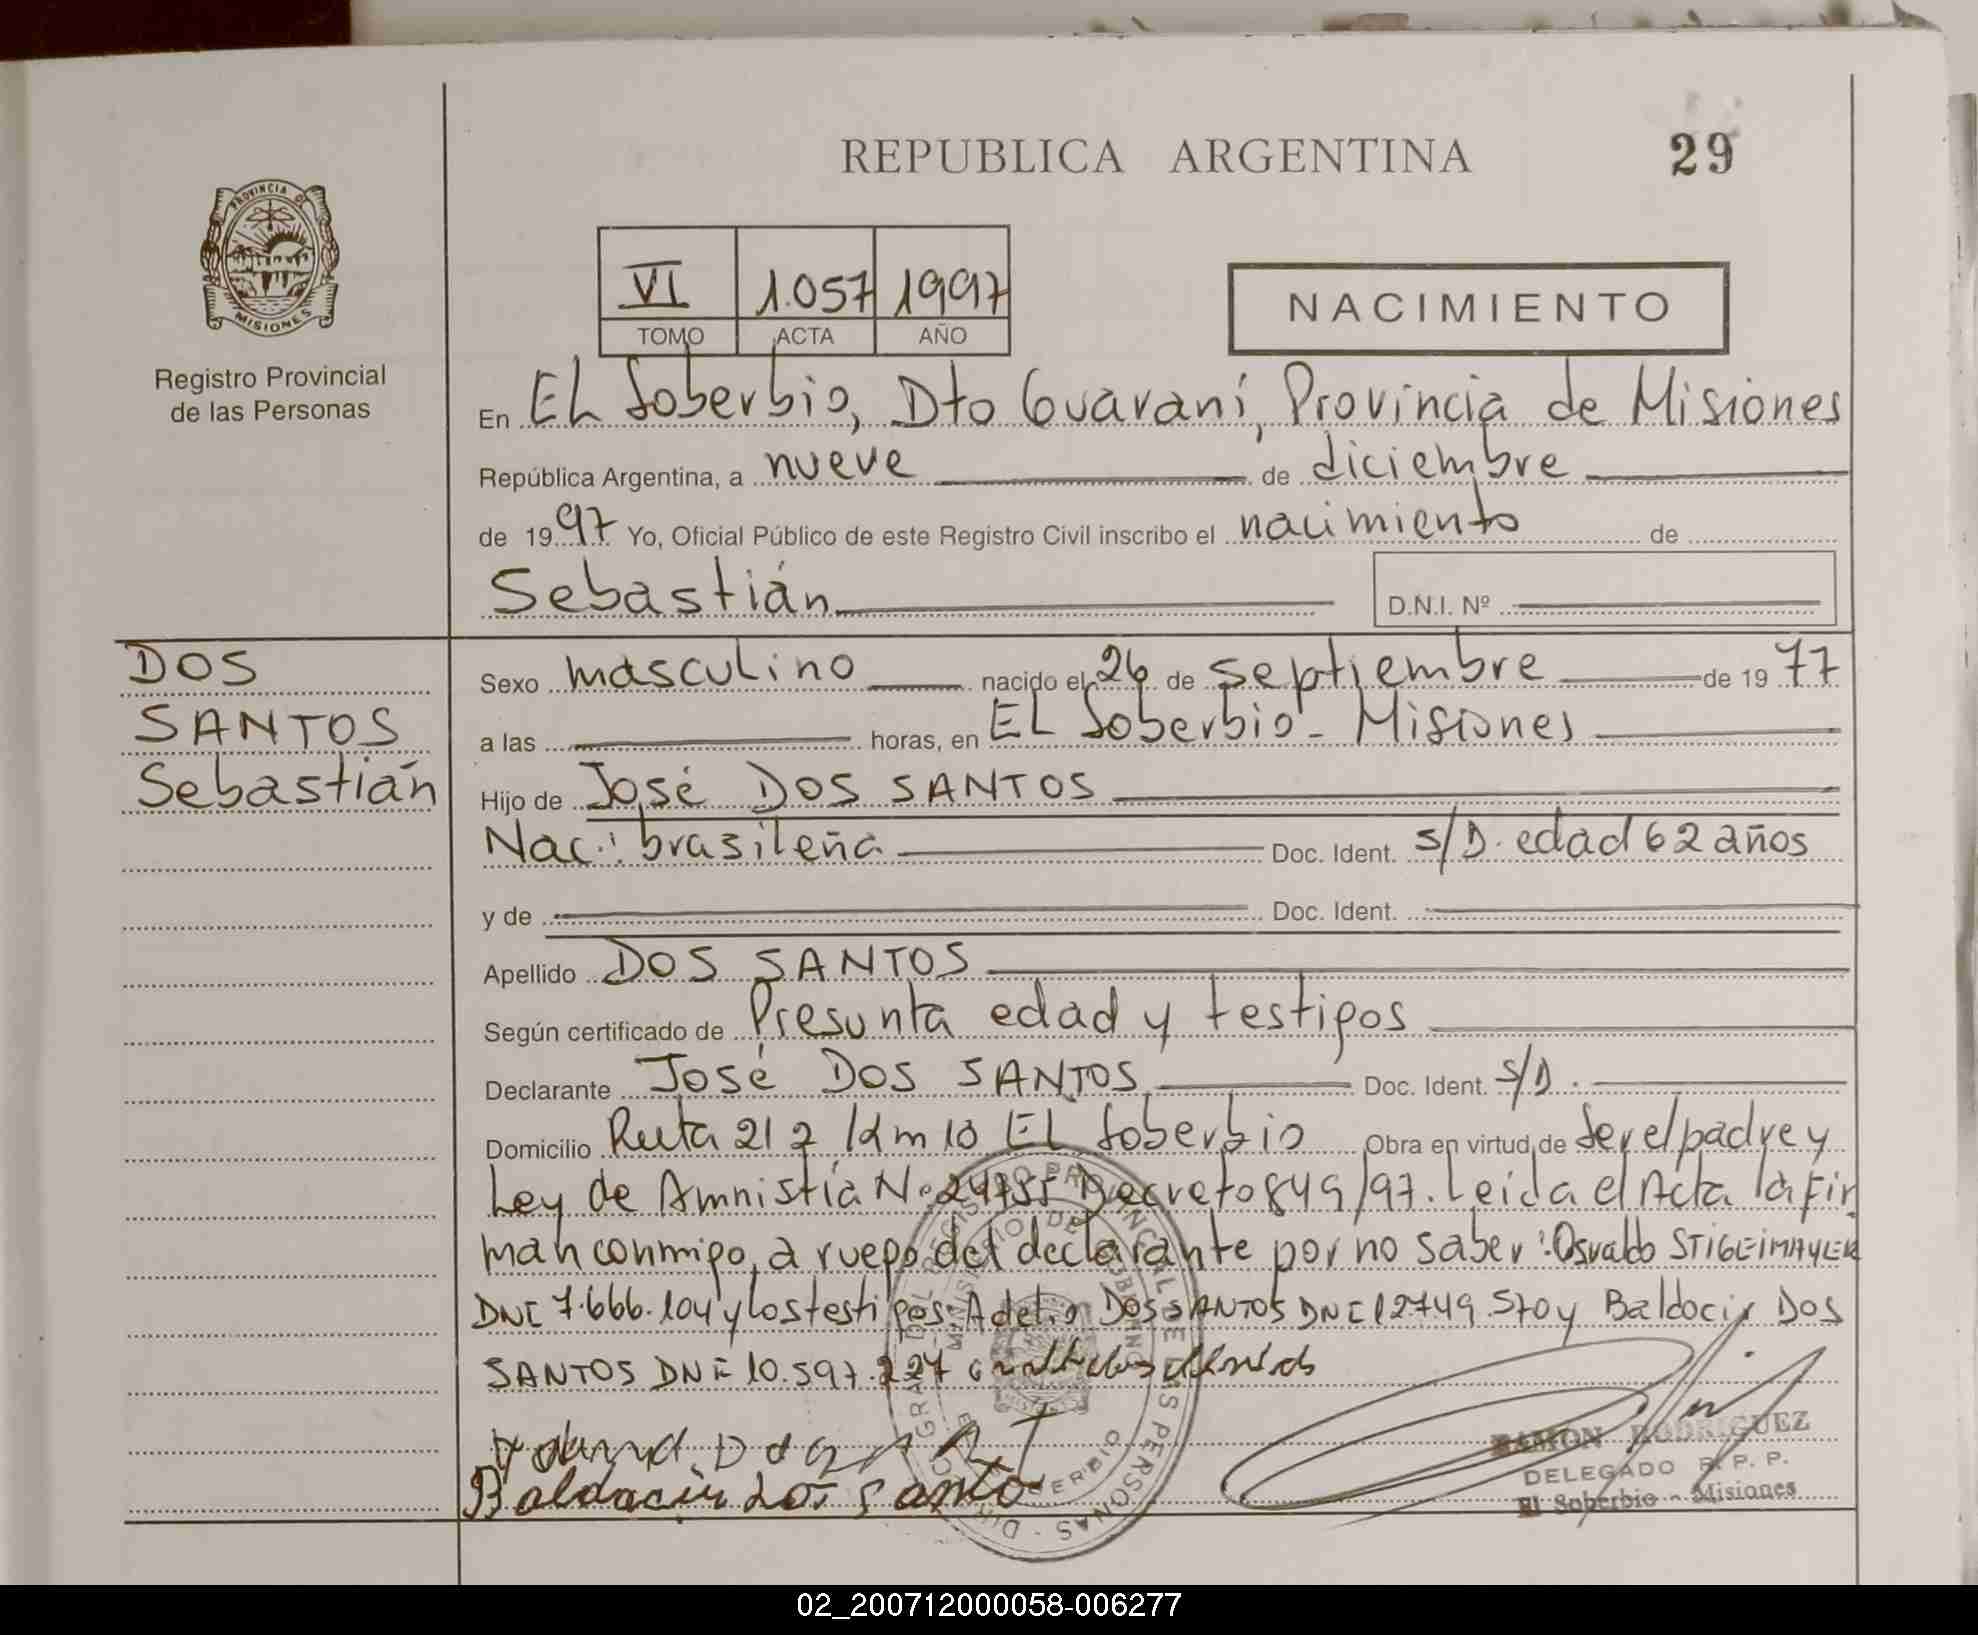 REPUBLICA ARGENTINA
29
PROVINCIA DE
MISIONES
Registro Provincial
de las Personas
VI 1.057 1997
TOMO ACTA AÑO
NACIMIENTO
En EL Soberbio, Dto Guaraní, Provincia de Misiones
República Argentina, a nueve de diciembre
de 1997 Yo, Oficial Público de este Registro Civil inscribo el nacimiento de
Sebastián D.N.I. Nº
DOS
SANTOS
Sebastián
Sexo masculino nacido el 26 de septiembre de 1977
a las horas, en EL Soberbio - Misiones
Hijo de José DOS SANTOS
Nac.: brasileña Doc. Ident. S/D. edad 62 años
y de Doc. Ident.
Apellido DOS SANTOS
Según certificado de Presunta edad y testigos
Declarante José DOS SANTOS Doc. Ident. S/D.
Domicilio Ruta 212 Km 10 EL Soberbio Obra en virtud de Ser el padre y
Ley de Amnistía Nº 24755 Decreto 849/97. Leída el Acta la fir
man conmigo, a ruego del declarante por no saber: Osvaldo STIGEIMAYER
DNI 7.666.104 y los testigos: Adelio DOS SANTOS DNI 12749.570 y Baldocir DOS
SANTOS DNI 10.597.227
Baldacir dos Santo
RAMON RODRIGUEZ
DELEGADO R. P. P.
El Soberbio - Misiones
02_200712000058-006277